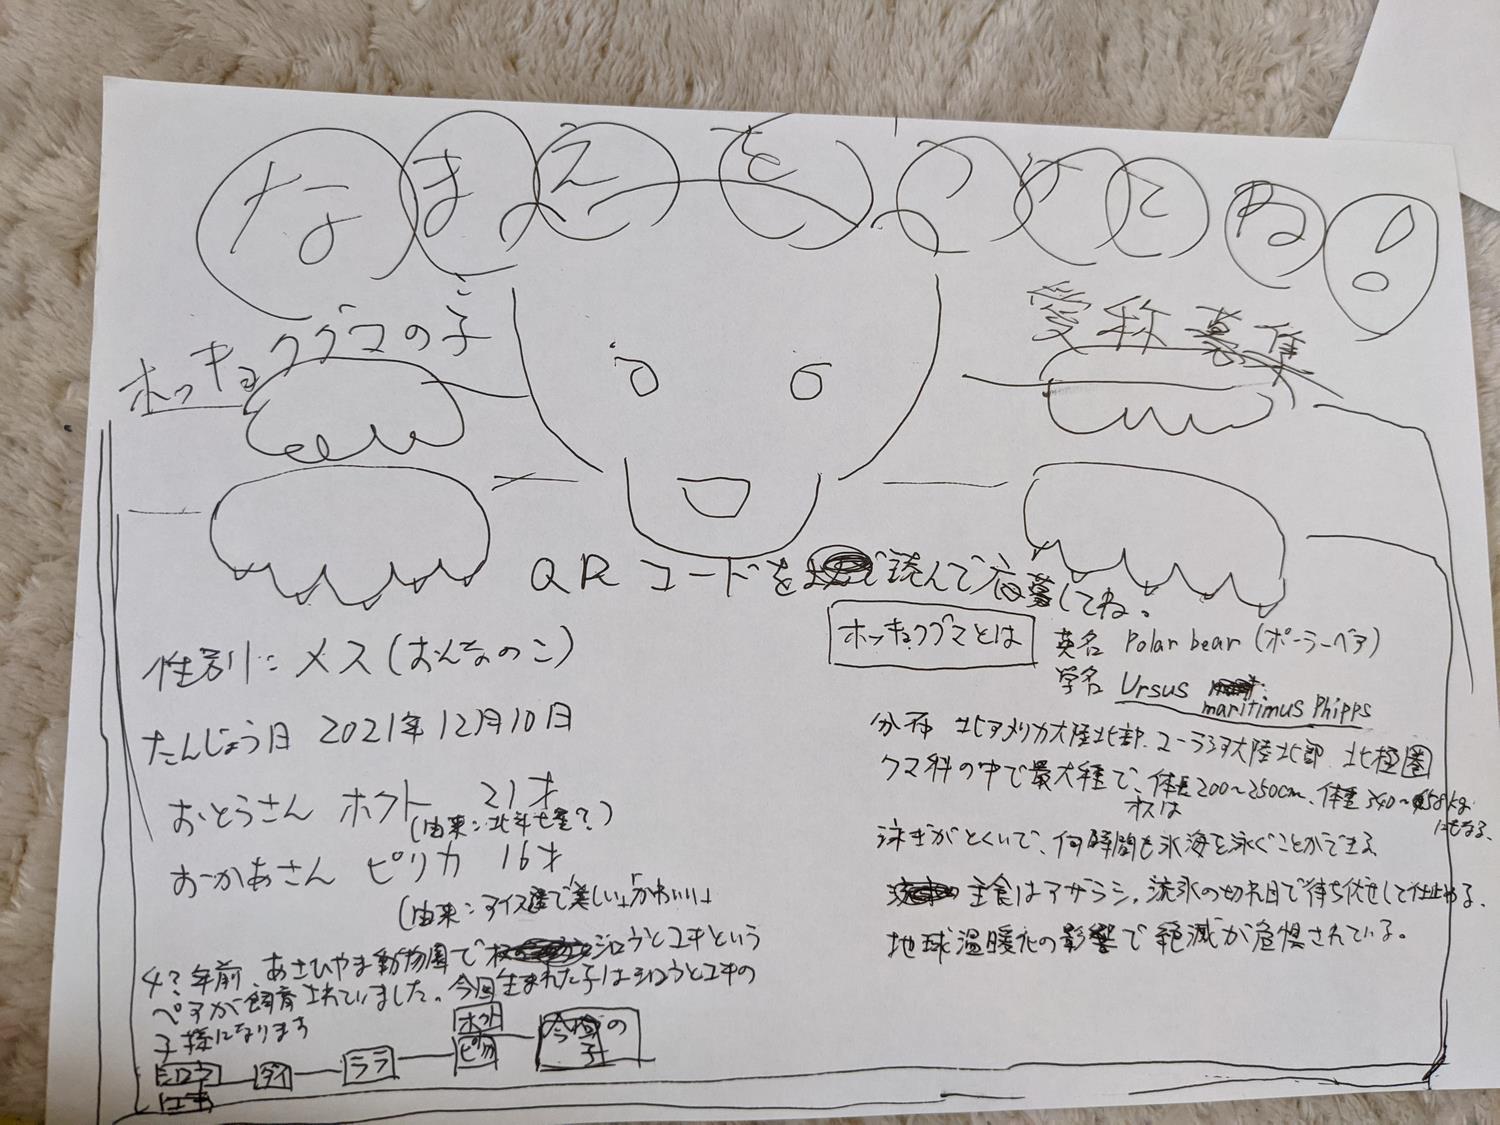 なまえをつけてね!
ホッキョクグマの子
愛称募集
QRコードを読んで応募してね。
性別: メス(おんなのこ)
たんじょう日 2021年12月10日
おとうさん ホクト 21才
(由来:北斗七星?)
おかあさん ピリカ 16才
(由来:アイヌ語で「美しい」「かわいい」
4?年前、あさひやま動物園でジロウとユキという
ペアが飼育されていました。今回生まれた子はジロウとユキの
子孫になります
ホクト
ピリカ
今回の
子
ララ
ジロウ
ユキ
ホッキョクグマとは
英名 Polar bear (ポーラーベア)
学名 Ursus
maritimus Phipps
分布 北アメリカ大陸北部、ユーラシア大陸北部 北極圏
クマ科の中で最大種で、体長200〜250cm、体重340〜
にもなる、
オスは
泳ぎがとくいで、何時間も氷海を泳ぐことができる
主食はアザラシ。流氷の切れ目で待ち伏せして仕止める、
地球温暖化の影響で絶滅が危惧されている。